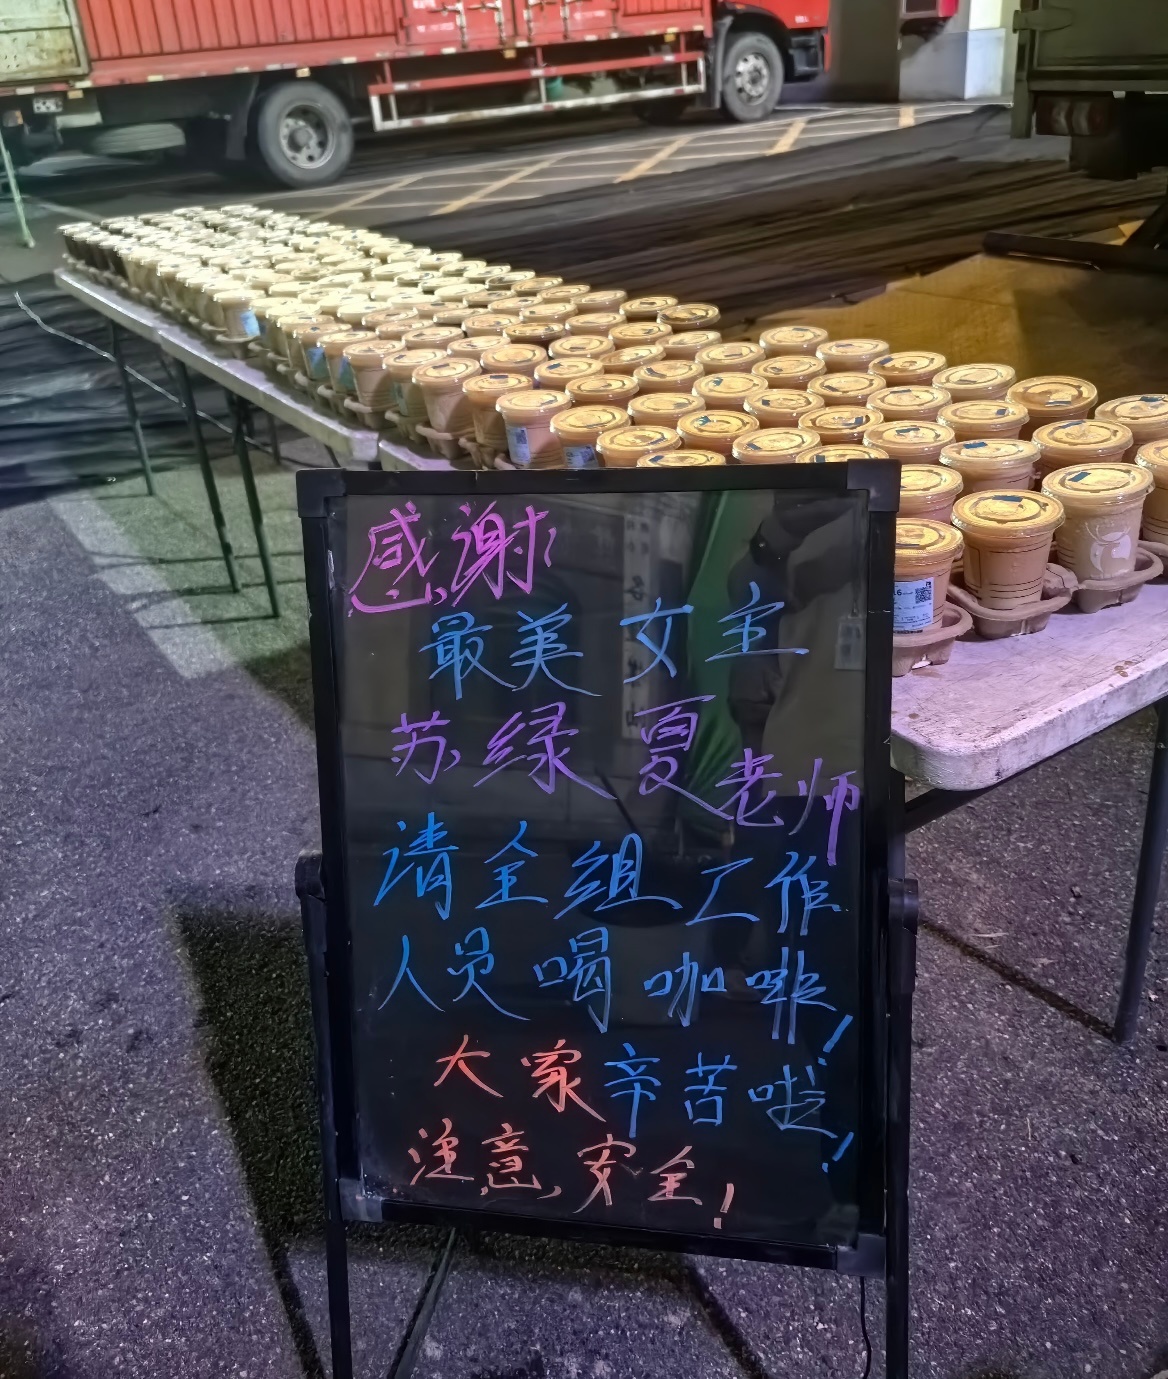 感谢
最美女主
苏绿夏老师
请全组工作
人员喝咖啡！
大家辛苦啦！
注意安全！